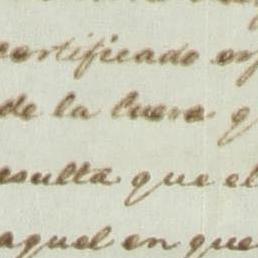 certificado
de la Cueva q
esulta que el
aquel en que